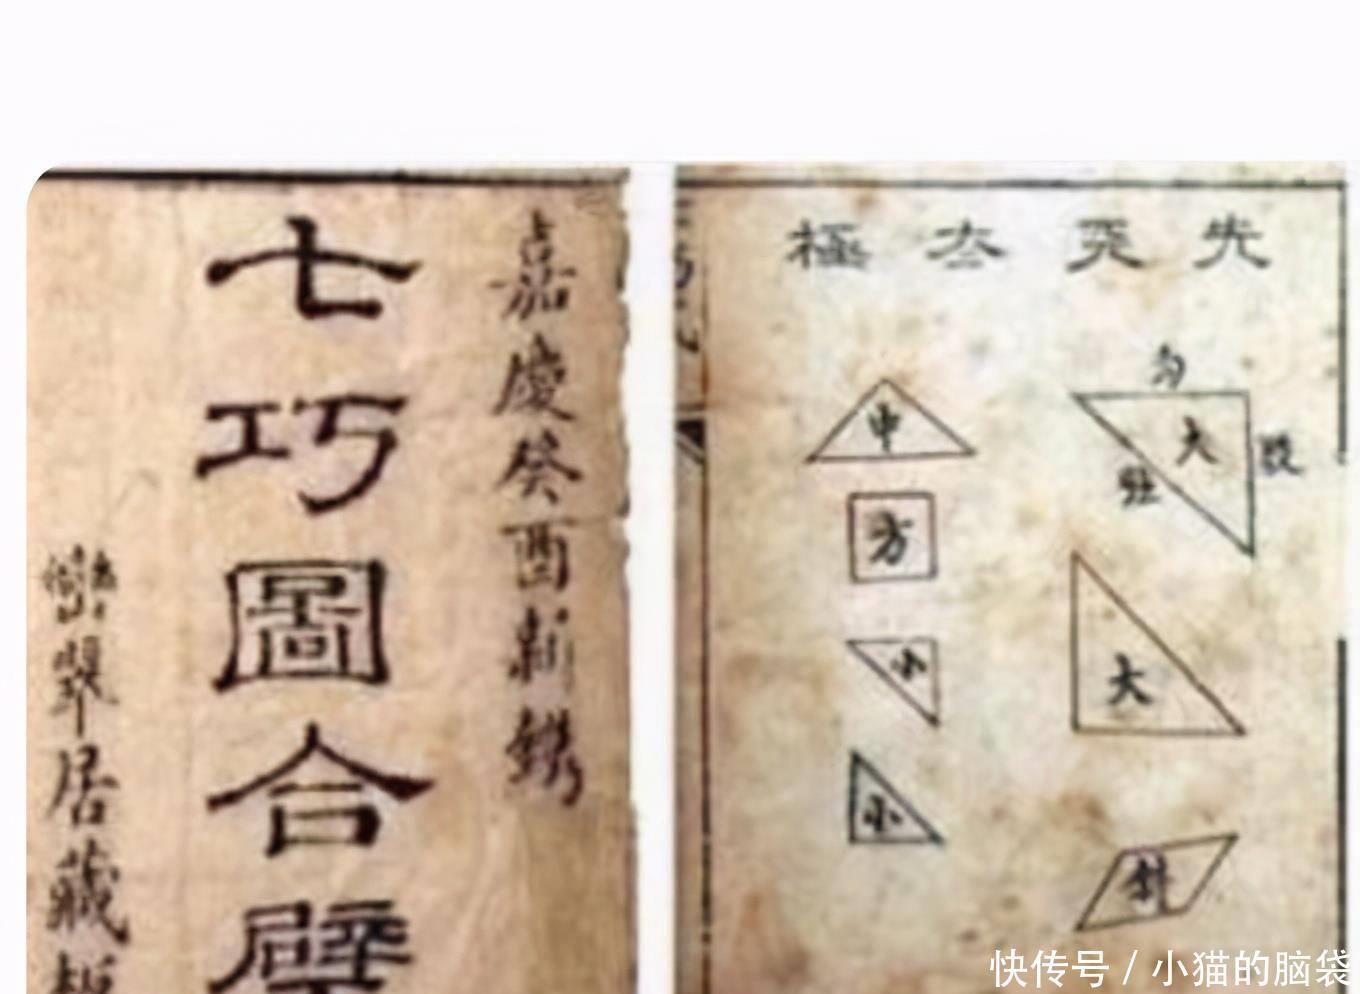 嘉慶癸酉新鐫
七巧圖合璧
翠居藏板
先天太極
勾
大
股
中
方
大
小
小
斜
快传号 / 小猫的脑袋